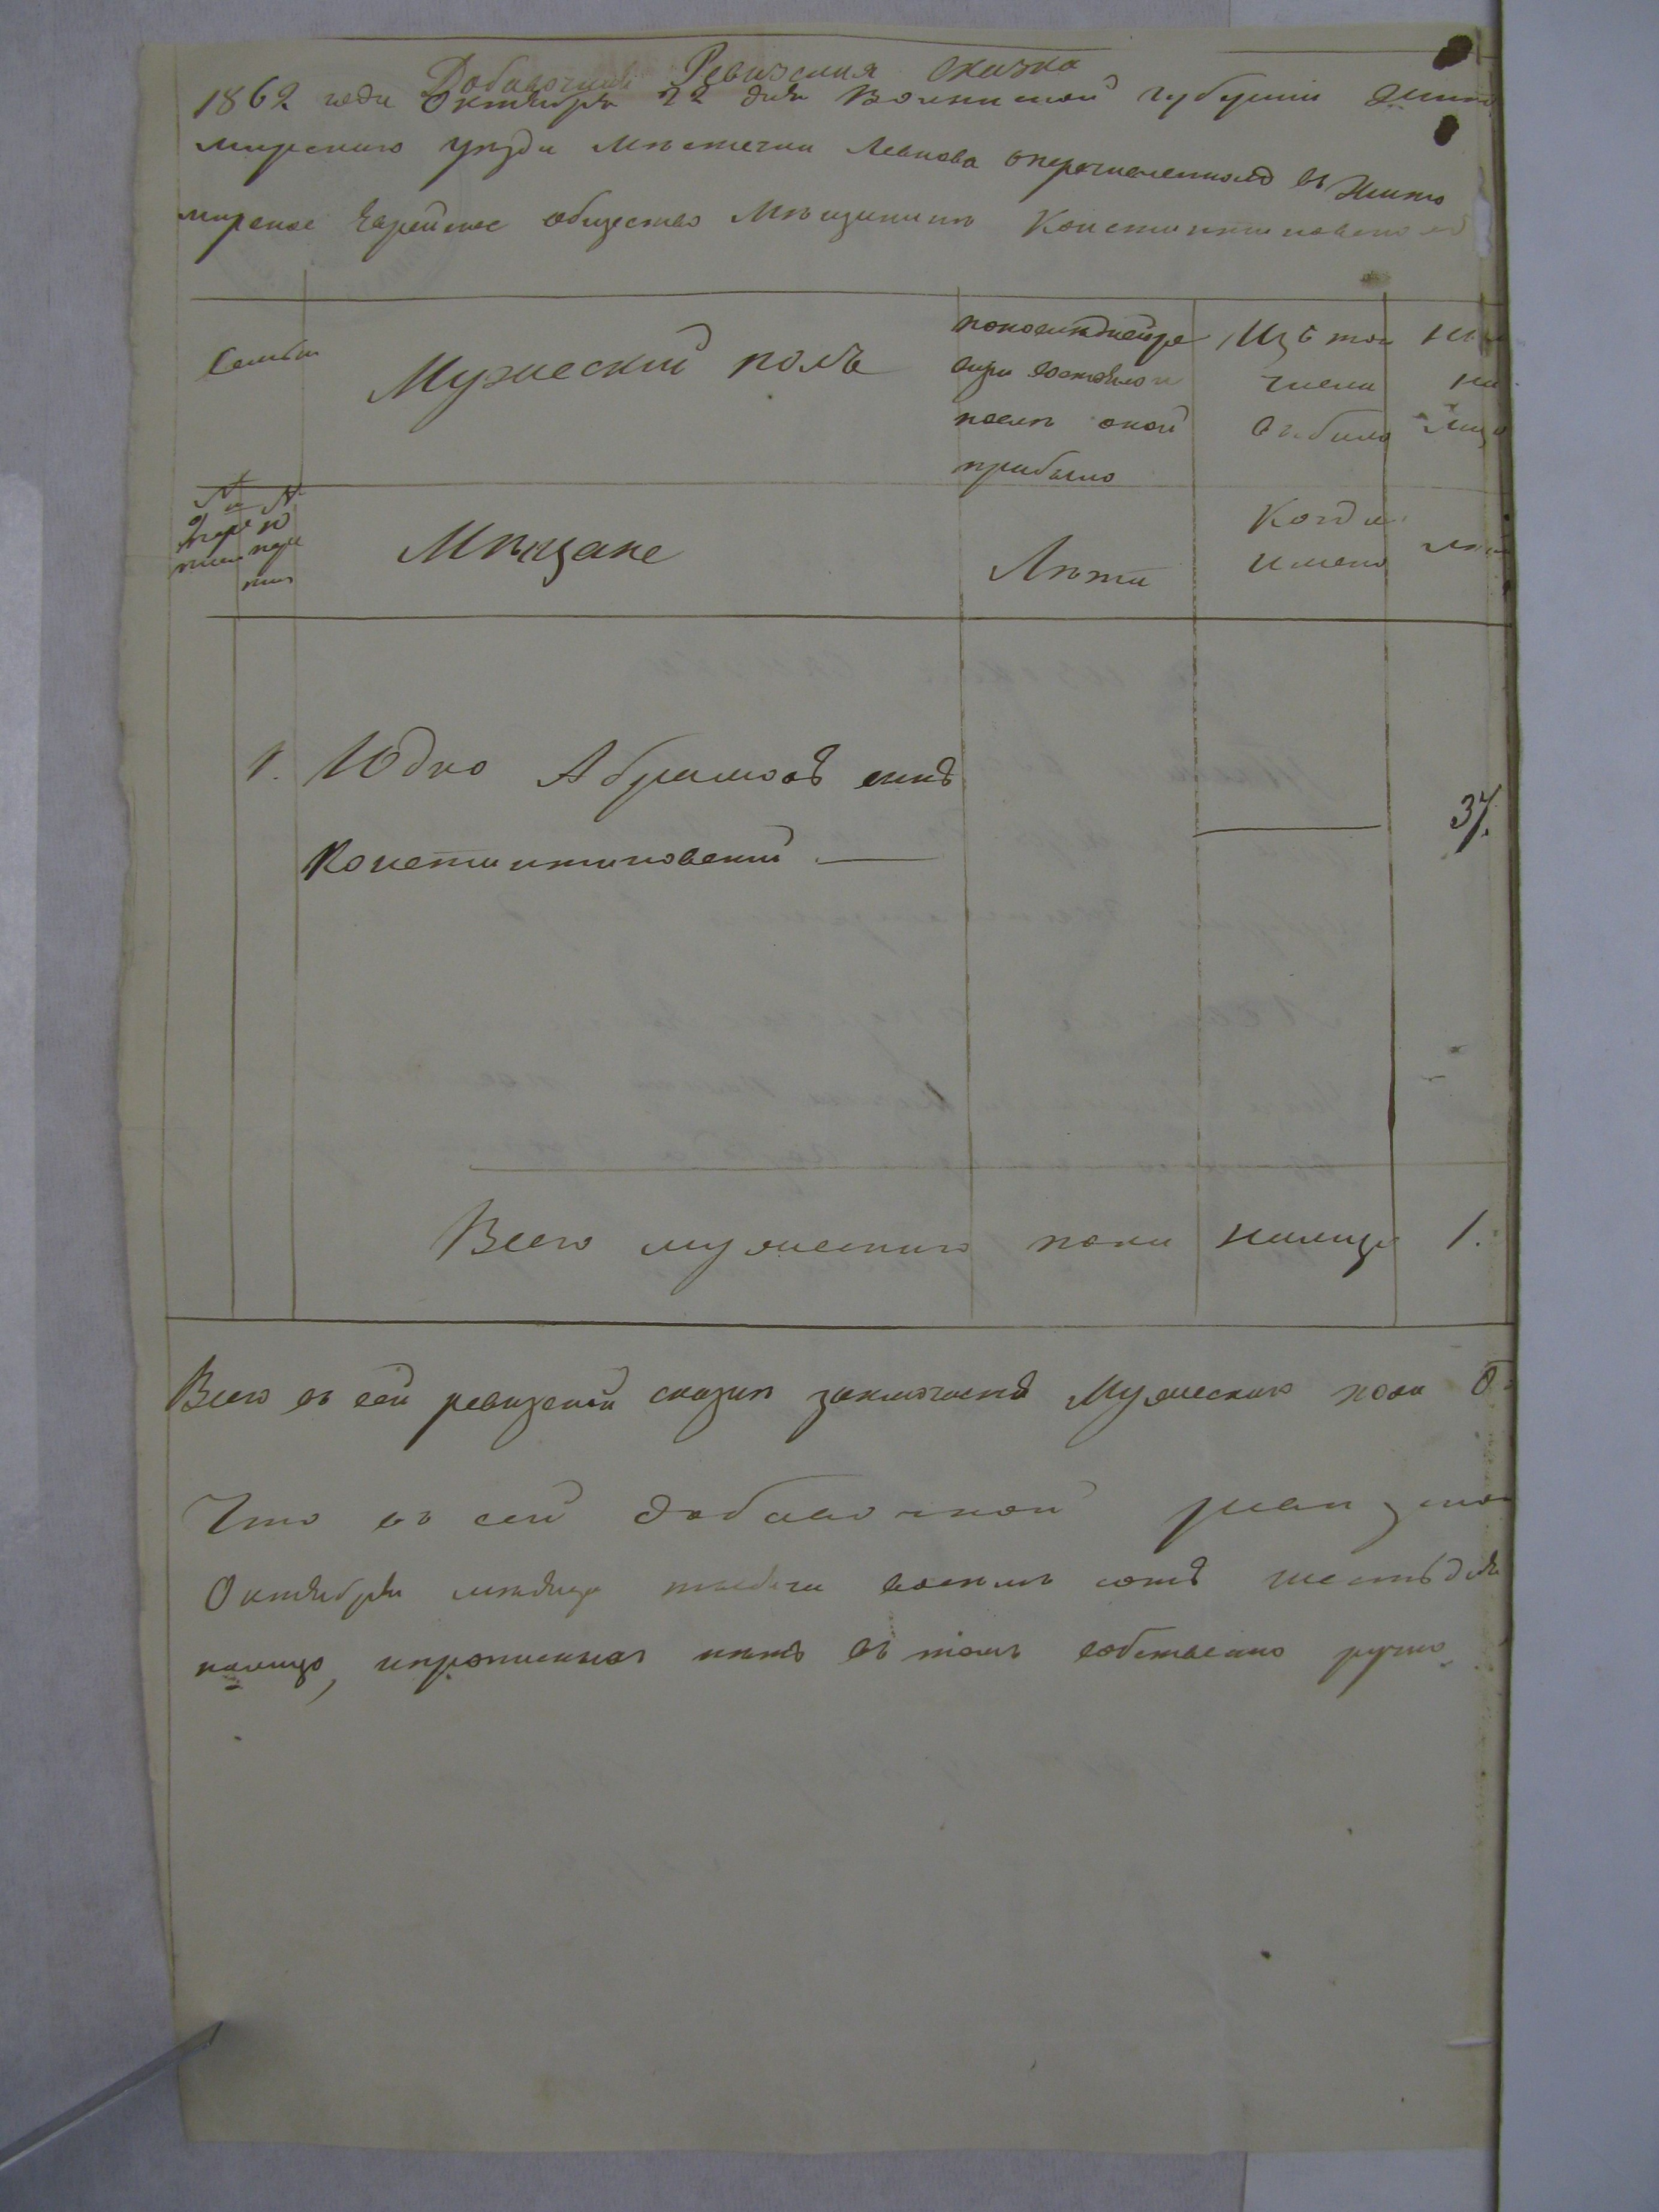 Добавочная Ревизская Сказка
1862 года Октября 22 дня Волынской губернии Жито
мирскаго уезда Местечка Левкова оперечисленномъ въ Жито
мирское Еврейское общество Мещанинъ Константиновском
Семьи
Мужескій полъ
попоследней ре
визіи состояло и
после оной
прибыло
Изъ того
числа
выбыло
ны
на
лицо
Мещане
Лета
Когда
имено
лета
1. Юдко Абрамовъ сынъ
Константиновскій —
37.
Всего мужескаго пола налицо 1.
Всего въ сей ревизской сказке заключаетъ Мужескаго пола
Что въ сей добавочной
Октября месяца тысяча восемь сотъ шестьдеся
налицо, ипрописныхъ нетъ въ томъ собственно ручно